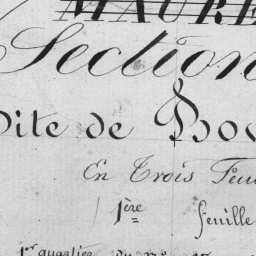 MAURE
Section
Dite de Bou
En Trois Feui
1ère feuille
1er quartier du N°